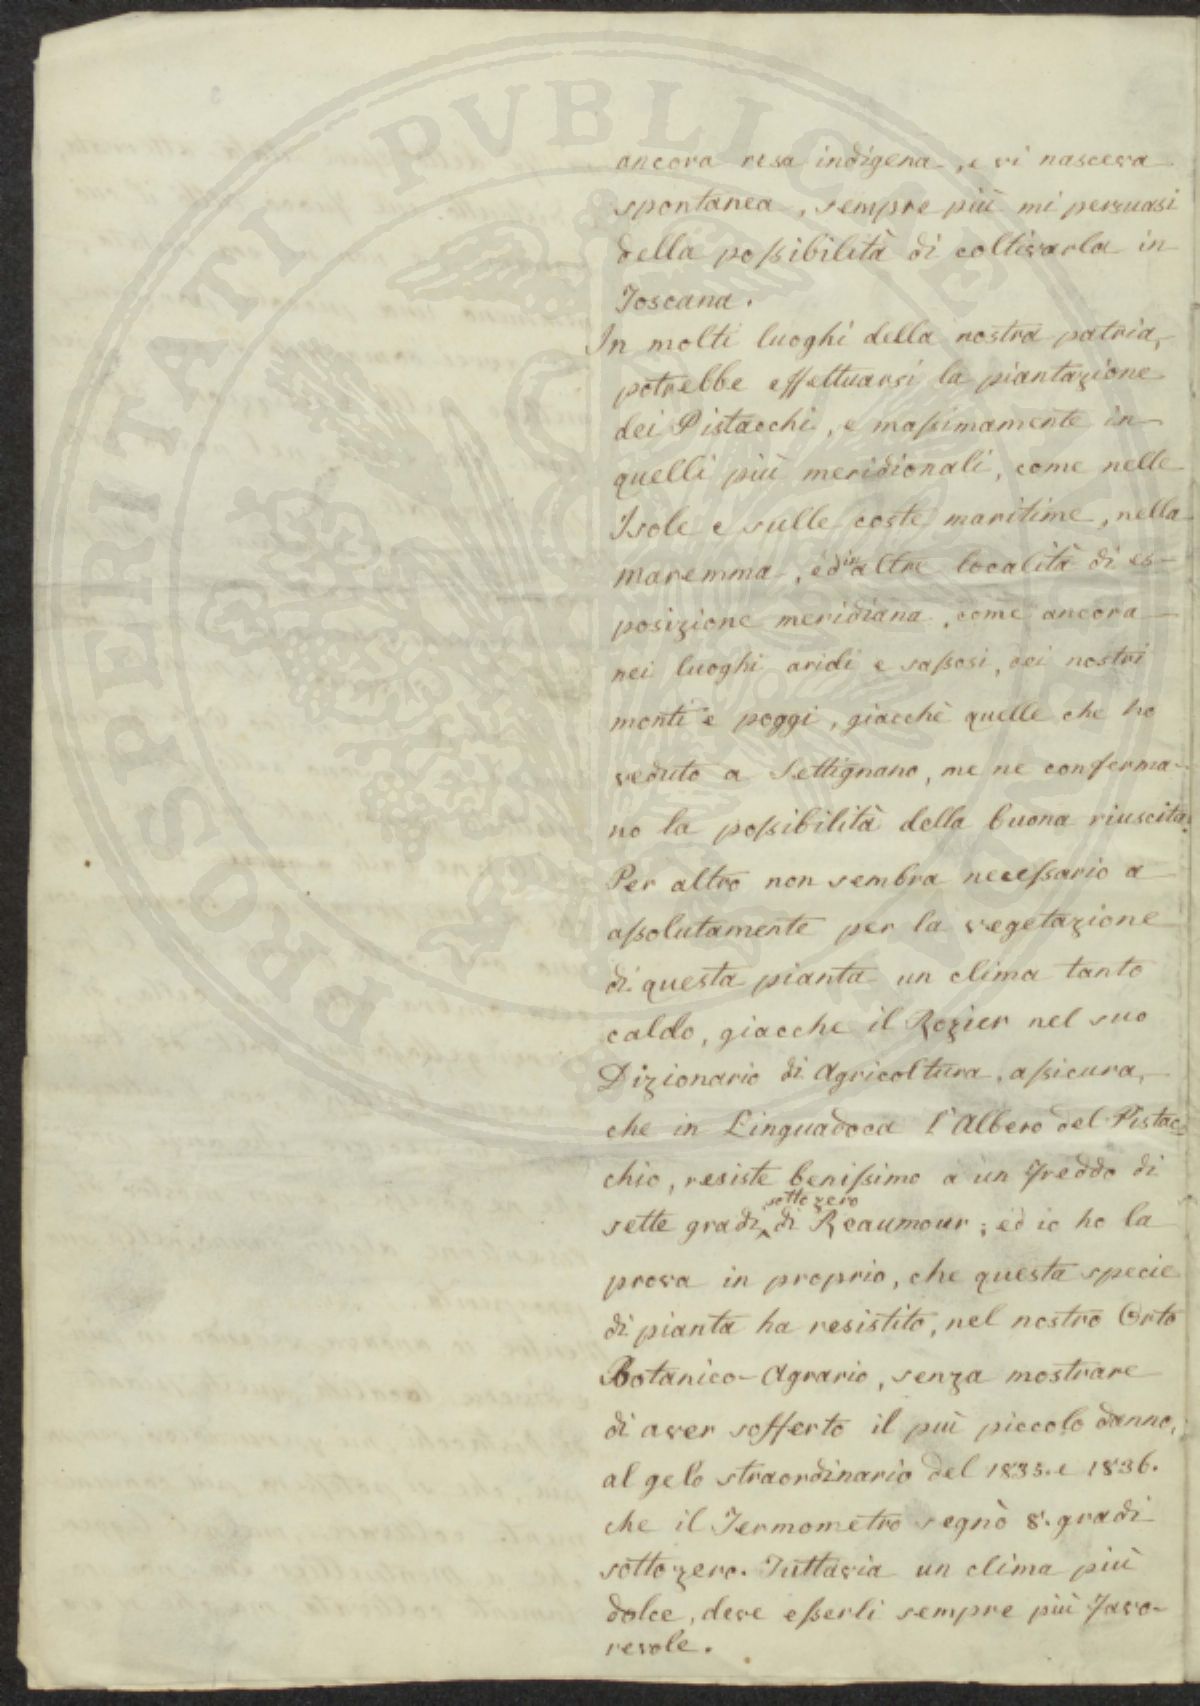 PROSPERITATI PVBLICAE AVGENDAE
ancora resa indigena, e vi nasceva
spontanea, sempre più mi persuasi
della poſsibilità di coltivarla in
Toscana.
In molti luoghi della nostra patria,
potrebbe effettuarsi la piantazione
dei Pistacchi, e maſsimamente in
quelli più meridionali, come nelle
Isole e sulle coste maritime, nella
maremma, ed in altre località di es-
posizione meridiana, come ancora
nei luoghi aridi e saſsosi, dei nostri
monti e poggi, giacchè quelle che ho
veduto a Settignano, me ne conferma-
no la poſsibilità della buona riuscita.
Per altro non sembra neceſsario a
aſsolutamente per la vegetazione
di questa pianta un clima tanto
caldo, giacche il Rozier nel suo
Dizionario di Agricoltura, aſsicura,
che in Linguadoca l'Albero del Pistac=
chio, resiste beniſsimo a un freddo di
sotto zero
sette gradi, di Reaumour; ed io ho la
prova in proprio, che questa specie
di pianta ha resistito, nel nostro Orto
Botanico-Agrario, senza mostrare
di aver sofferto il più piccolo danno,
al gelo straordinario del 1835. e 1836.
che il Termometro segnò 8. gradi
sottozero. Tuttavia un clima più
dolce, deve eſserli sempre più favo-
revole.